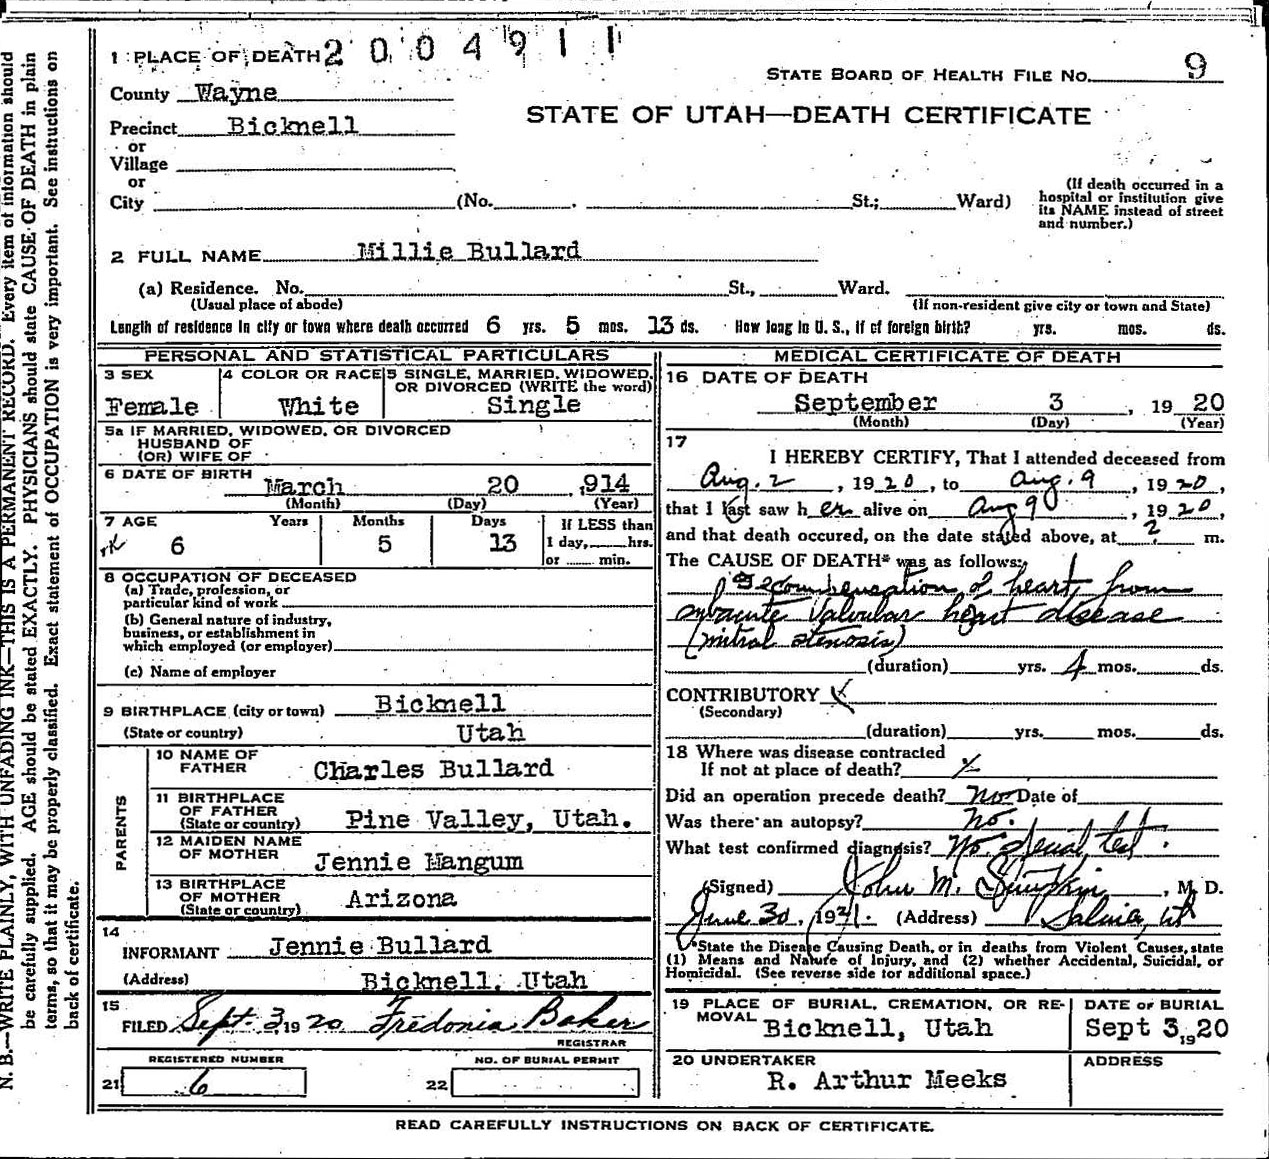 N. B.—WRITE PLAINLY, WITH UNFADING INK—THIS IS A PERMANENT RECORD. Every item of information should
be carefully supplied. AGE should be stated EXACTLY. PHYSICIANS should state CAUSE OF DEATH in plain
terms, so that it may be properly classified. Exact statement of OCCUPATION is very important. See instructions on
back of certificate.
1 PLACE OF DEATH 2004911
STATE BOARD OF HEALTH FILE NO. 9
County Wayne
STATE OF UTAH—DEATH CERTIFICATE
Precinct Bicknell
or
Village
or
City (No. St.; Ward)
(If death occurred in a
hospital or institution give
its NAME instead of street
and number.)
2 FULL NAME Millie Bullard
(a) Residence. No. St., Ward.
(Usual place of abode) (If non-resident give city or town and State)
Length of residence in city or town where death occurred 6 yrs. 5 mos. 13 ds. How long in U. S., if of foreign birth? yrs. mos. ds.
PERSONAL AND STATISTICAL PARTICULARS
3 SEX
Female
4 COLOR OR RACE
White
5 SINGLE, MARRIED, WIDOWED,
OR DIVORCED (WRITE the word)
Single
5a IF MARRIED, WIDOWED, OR DIVORCED
HUSBAND OF
(OR) WIFE OF
6 DATE OF BIRTH
March 20 ,914
(Month) (Day) (Year)
7 AGE Years Months Days If LESS than
6 5 13 1 day, hrs.
or min.
8 OCCUPATION OF DECEASED
(a) Trade, profession, or
particular kind of work
(b) General nature of industry,
business, or establishment in
which employed (or employer)
(c) Name of employer
9 BIRTHPLACE (city or town) Bicknell
(State or country) Utah
PARENTS
10 NAME OF
FATHER Charles Bullard
11 BIRTHPLACE
OF FATHER
(State or country) Pine Valley, Utah.
12 MAIDEN NAME
OF MOTHER Jennie Mangum
13 BIRTHPLACE
OF MOTHER
(State or country) Arizona
14
INFORMANT Jennie Bullard
(Address) Bicknell, Utah
15
FILED Sept. 3 1920 Fredonia Baker
REGISTRAR
REGISTERED NUMBER NO. OF BURIAL PERMIT
21 6 22
MEDICAL CERTIFICATE OF DEATH
16 DATE OF DEATH
September 3, 1920
(Month) (Day) (Year)
17
I HEREBY CERTIFY, That I attended deceased from
Aug. 2, 1920, to Aug. 9, 1920,
that I last saw her alive on Aug 9, 1920,
and that death occured, on the date stated above, at ? m.
The CAUSE OF DEATH* was as follows:
Decompensation of heart, from
subacute Valvular heart disease
(mitral stenosis)
(duration) yrs. 4 mos. ds.
CONTRIBUTORY
(Secondary)
(duration) yrs. mos. ds.
18 Where was disease contracted
If not at place of death?
Did an operation precede death? No Date of
Was there an autopsy? No.
What test confirmed diagnosis? No special test.
(Signed) John M. , M. D.
June 30, 1921. (Address) Salina, Ut
*State the Disease Causing Death, or in deaths from Violent Causes, state
(1) Means and Nature of Injury, and (2) whether Accidental, Suicidal, or
Homicidal. (See reverse side for additional space.)
19 PLACE OF BURIAL, CREMATION, OR RE-
MOVAL Bicknell, Utah
DATE OF BURIAL
Sept 3, 1920
20 UNDERTAKER
R. Arthur Meeks
ADDRESS
READ CAREFULLY INSTRUCTIONS ON BACK OF CERTIFICATE.